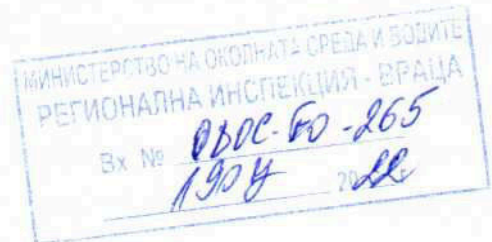 МИНИСТЕРСТВО НА ОКОЛНАТА СРЕДА И ВОДИТЕ
РЕГИОНАЛНА ИНСПЕКЦИЯ - ВРАЦА
Вх № ОВОС-БО-265
20 22